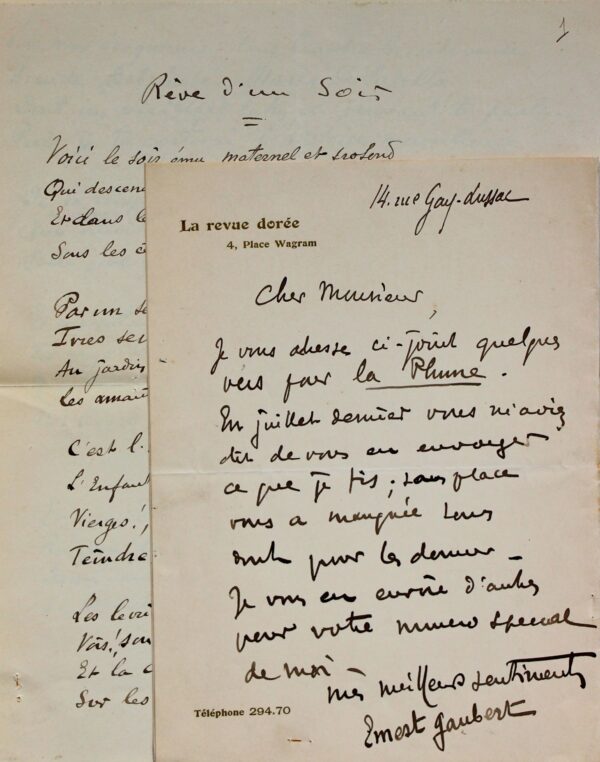 1
Rêve d'un Soir
Voici le soir ému maternel et profond
Qui descen
Et dans le
Sous les
Par un
Ivres
Au jardin
Les amait
C'est l
L'Enfan
Vierges!
Teindre
Les
Vois!
Et la
Sur les
14, rue Gay-Lussac
La revue dorée
4, Place Wagram
Cher Monsieur,
Je vous adresse ci-joint quelques
vers pour la Plume.
En juillet dernier vous m'aviez
dit de vous en envoyer
ce que je fis; sans place
vous a manqué sans
pour les donner –
Je vous en envoie d'autres
pour votre numéro spécial
de mai –
mes meilleurs sentiments
Ernest Gaubert
Téléphone 294.70